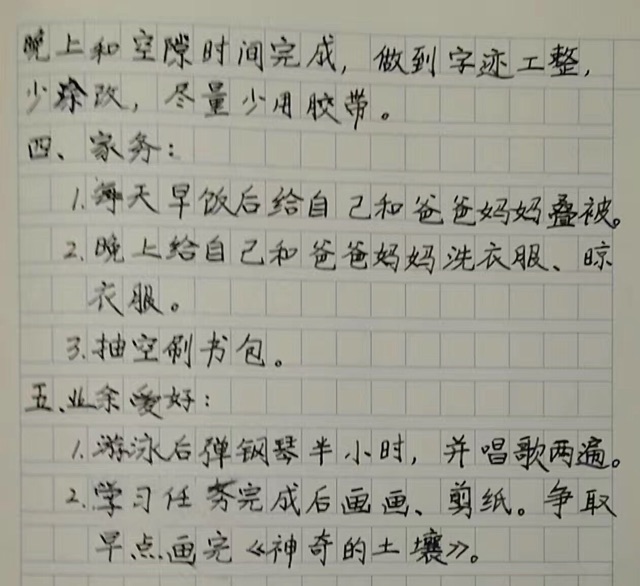 晚上和空隙时间完成，做到字迹工整，
少涂改，尽量少用胶带。
四、家务：
1.每天早饭后给自己和爸爸妈妈叠被。
2.晚上给自己和爸爸妈妈洗衣服、晾
衣服。
3.抽空刷书包。
五、业余爱好：
1.游泳后弹钢琴半小时，并唱歌两遍。
2.学习任务完成后画画、剪纸。争取
早点画完《神奇的土壤》。